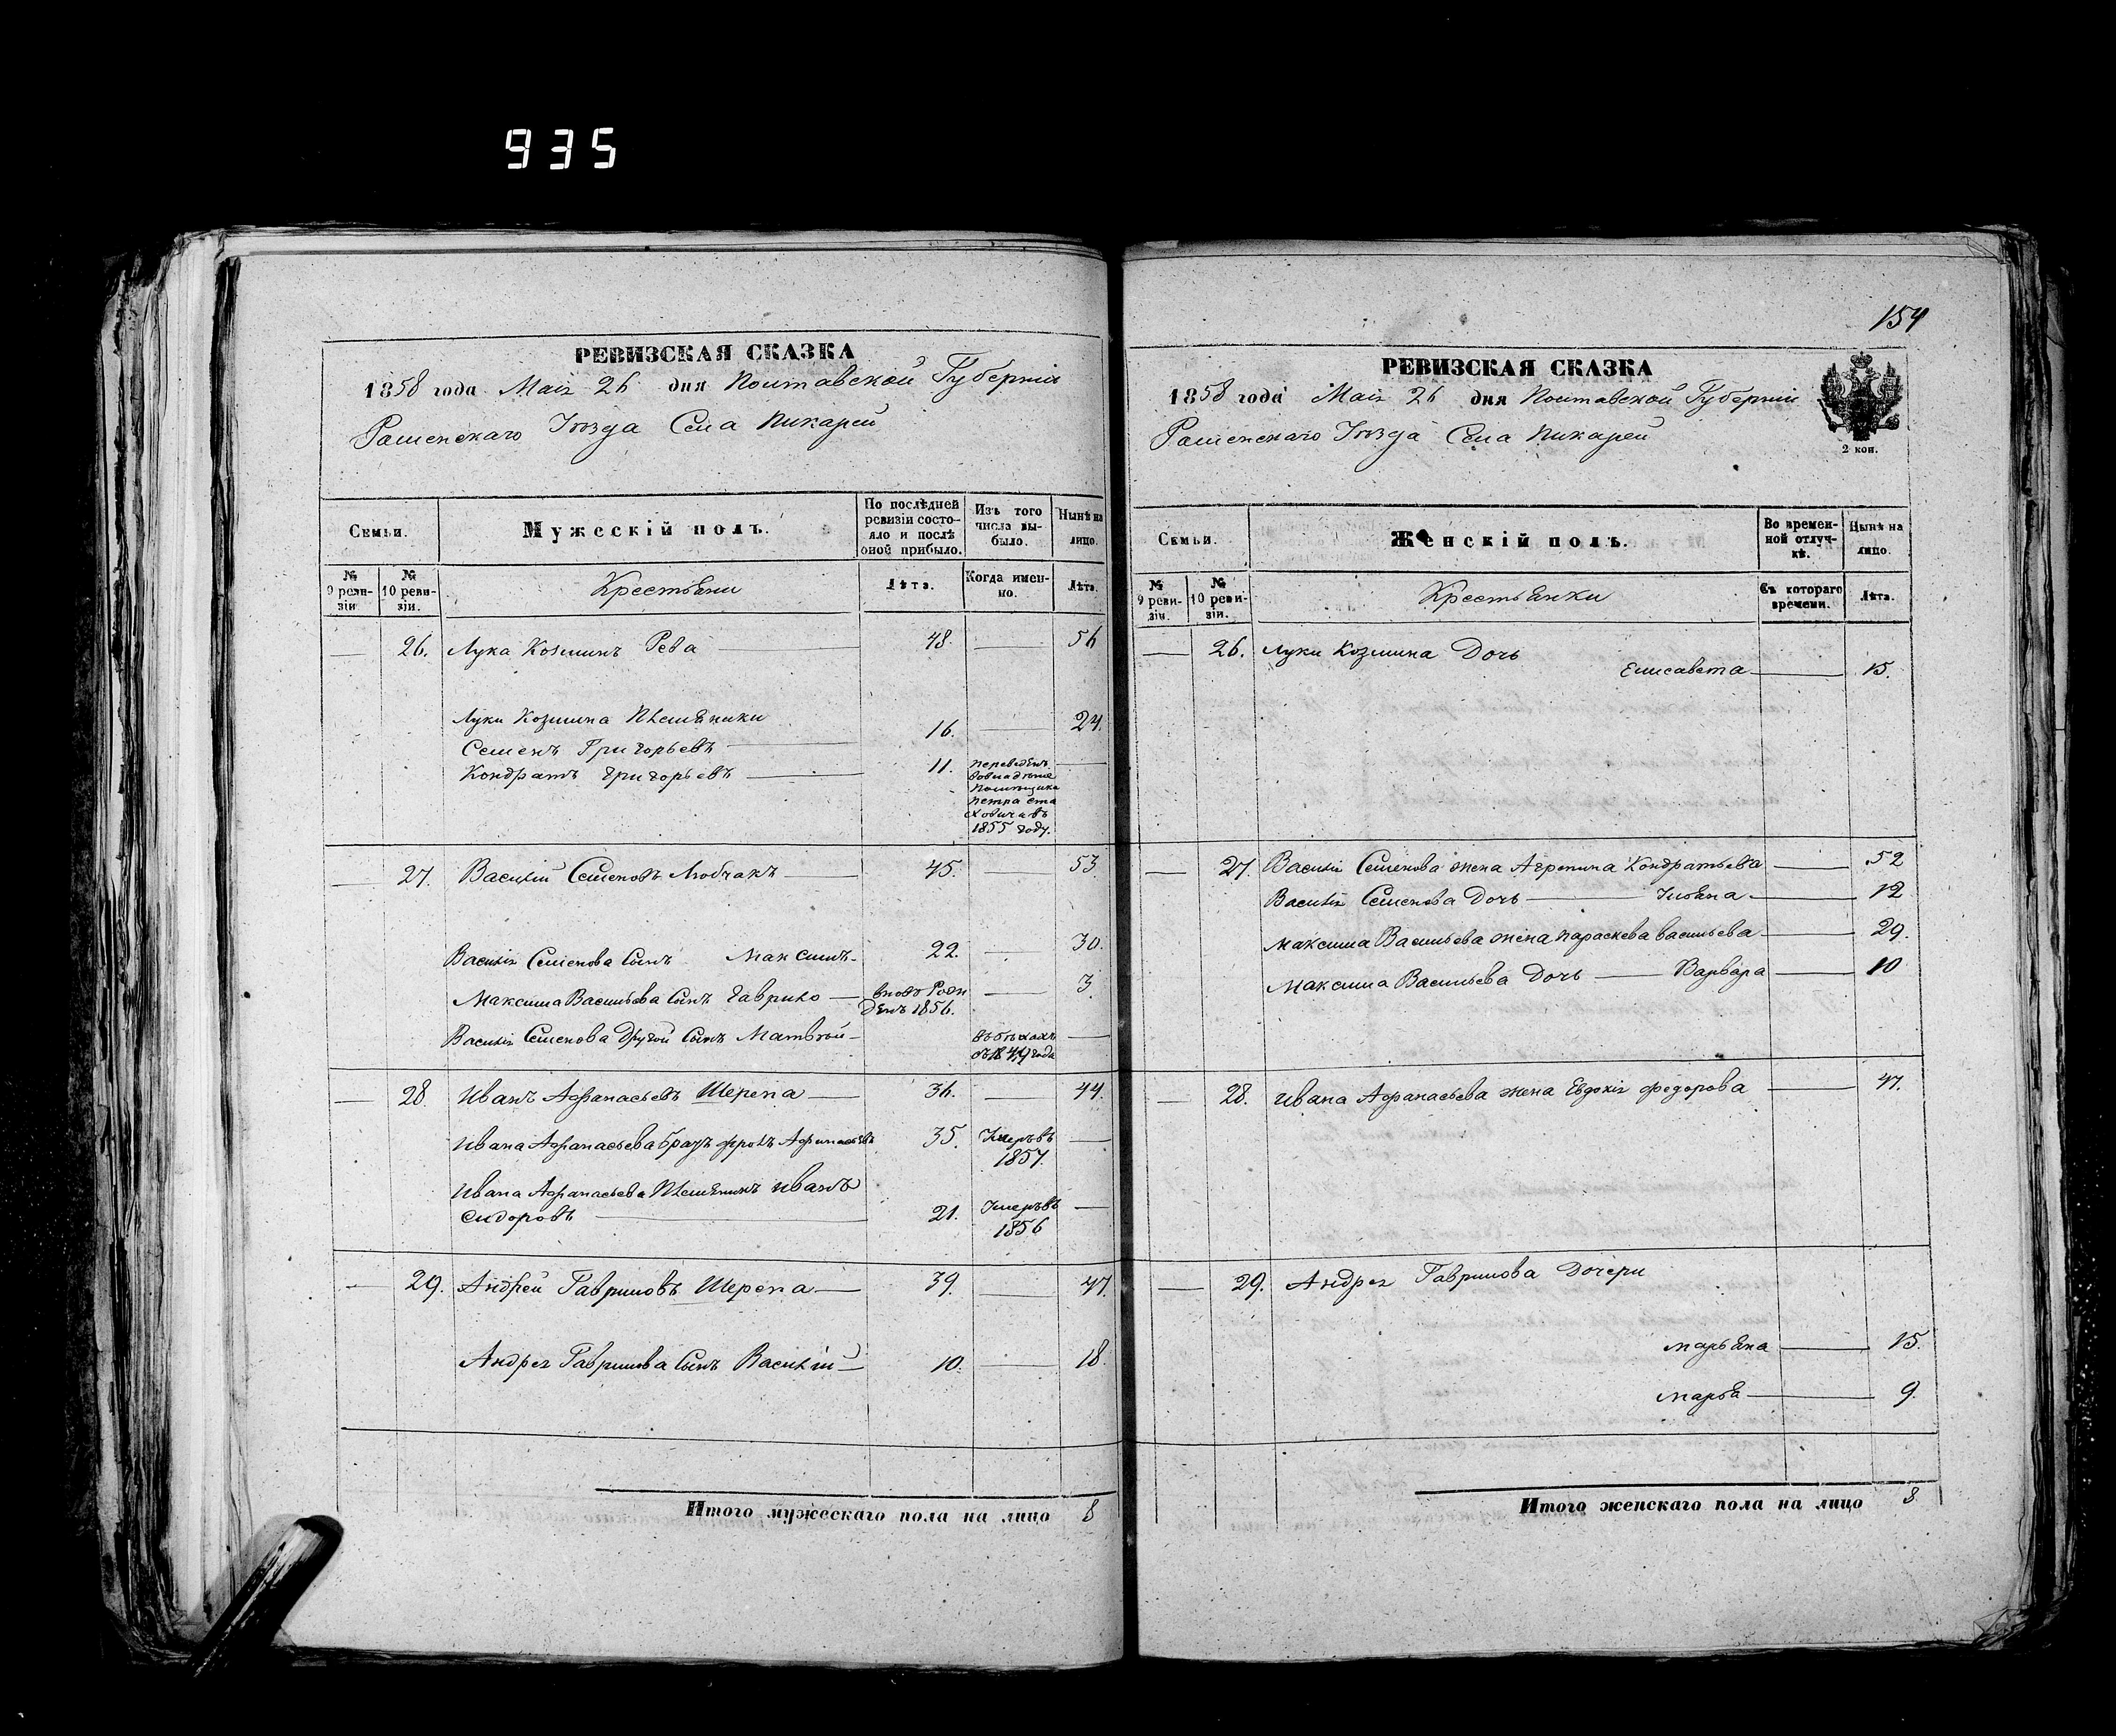 935
РЕВИЗСКАЯ СКАЗКА
1858 года Маія 26 дня Полтавской Губерніи
Уѣзда Села Пикарей
Семьи.
Мужескій полъ.
По послѣдней ревизіи состояло и послѣ оной прибыло.
Изъ того числа выбыло.
Нынѣ на лицо.
№ 9 ревизіи
№ 10 ревизіи.
Крестьяни
Лѣта.
Когда именно.
Лѣта.
— 26. Лука Козминъ Рева — 48. — 56
Луки Козмина Племяники
Семенъ Григорьевъ — 16. — 24.
Кондратъ Григорьевъ — 11. —
переведенъ
во владѣние
Помѣщика
Петра Ста
ховича въ
1855 году.
— 27. Василій Семеновъ Любчакъ — 45. — 53.
Василія Семенова Сынъ Максимъ — 22. — 30.
Максима Васильева Сынъ Гаврило — вновь Рож — 3.
денъ 1856.
Василія Семенова Другой Сынъ Матвѣй — въ бѣгахъ —
года
— 28. Иванъ Афанасьевъ Шерепа — 36. — 44.
Ивана Афанасьева братъ Фролъ Афанасьевъ 35. Умеръ въ —
1857.
Ивана Афанасьева Племяникъ Иванъ
Сидоровъ — 21. Умеръ въ —
1856
— 29. Андрей Гавриловъ Шерепа — 39. — 47.
Андрея Гаврилова Сынъ Василій — 10. — 18.
Итого мужескаго пола на лицо 8
154
РЕВИЗСКАЯ СКАЗКА
1858 года Маія 26 дня Полтавской Губерніи
Уѣзда Села Пикарей
2 коп.
Семьи.
Женскій полъ.
Во временной отлучкѣ.
Нынѣ на лицо.
№ 9 ревизіи.
№ 10 ревизіи.
Крестьянки
Съ котораго времени.
Лѣта.
— 26. Луки Козмина Дочь
Елисавета — 15.
— 27. Василія Семенова жена Агрепина Кондратьева — 52
Василія Семенова Дочь — Ульяна — 12
Максима Васильева жена Параскева Васильева — 29.
Максима Васильева Дочь — Варвара — 10
— 28. Ивана Афанасьева жена Евдокія Федорова — 47.
— 29. Андрея Гаврилова Дочери
Марьяна — 15.
Марья — 9.
Итого женскаго пола на лицо 8